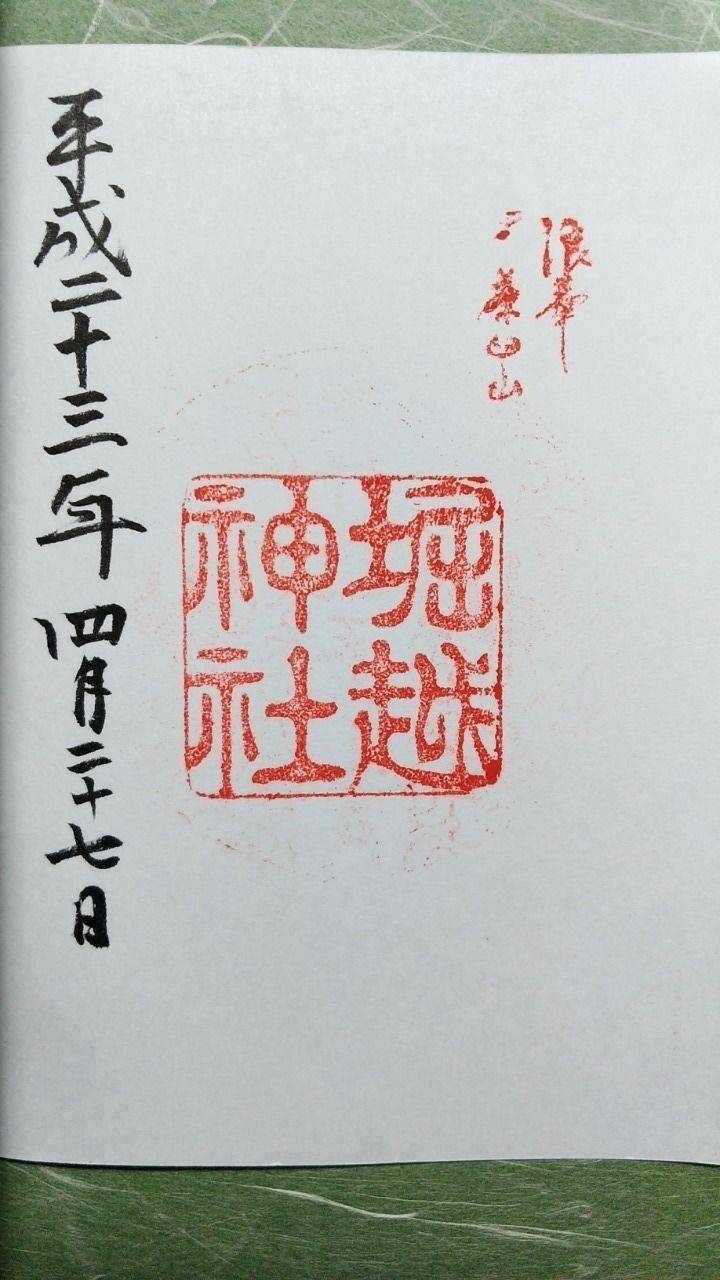 浪華
茶臼山
堀越
神社
平成二十三年四月二十七日